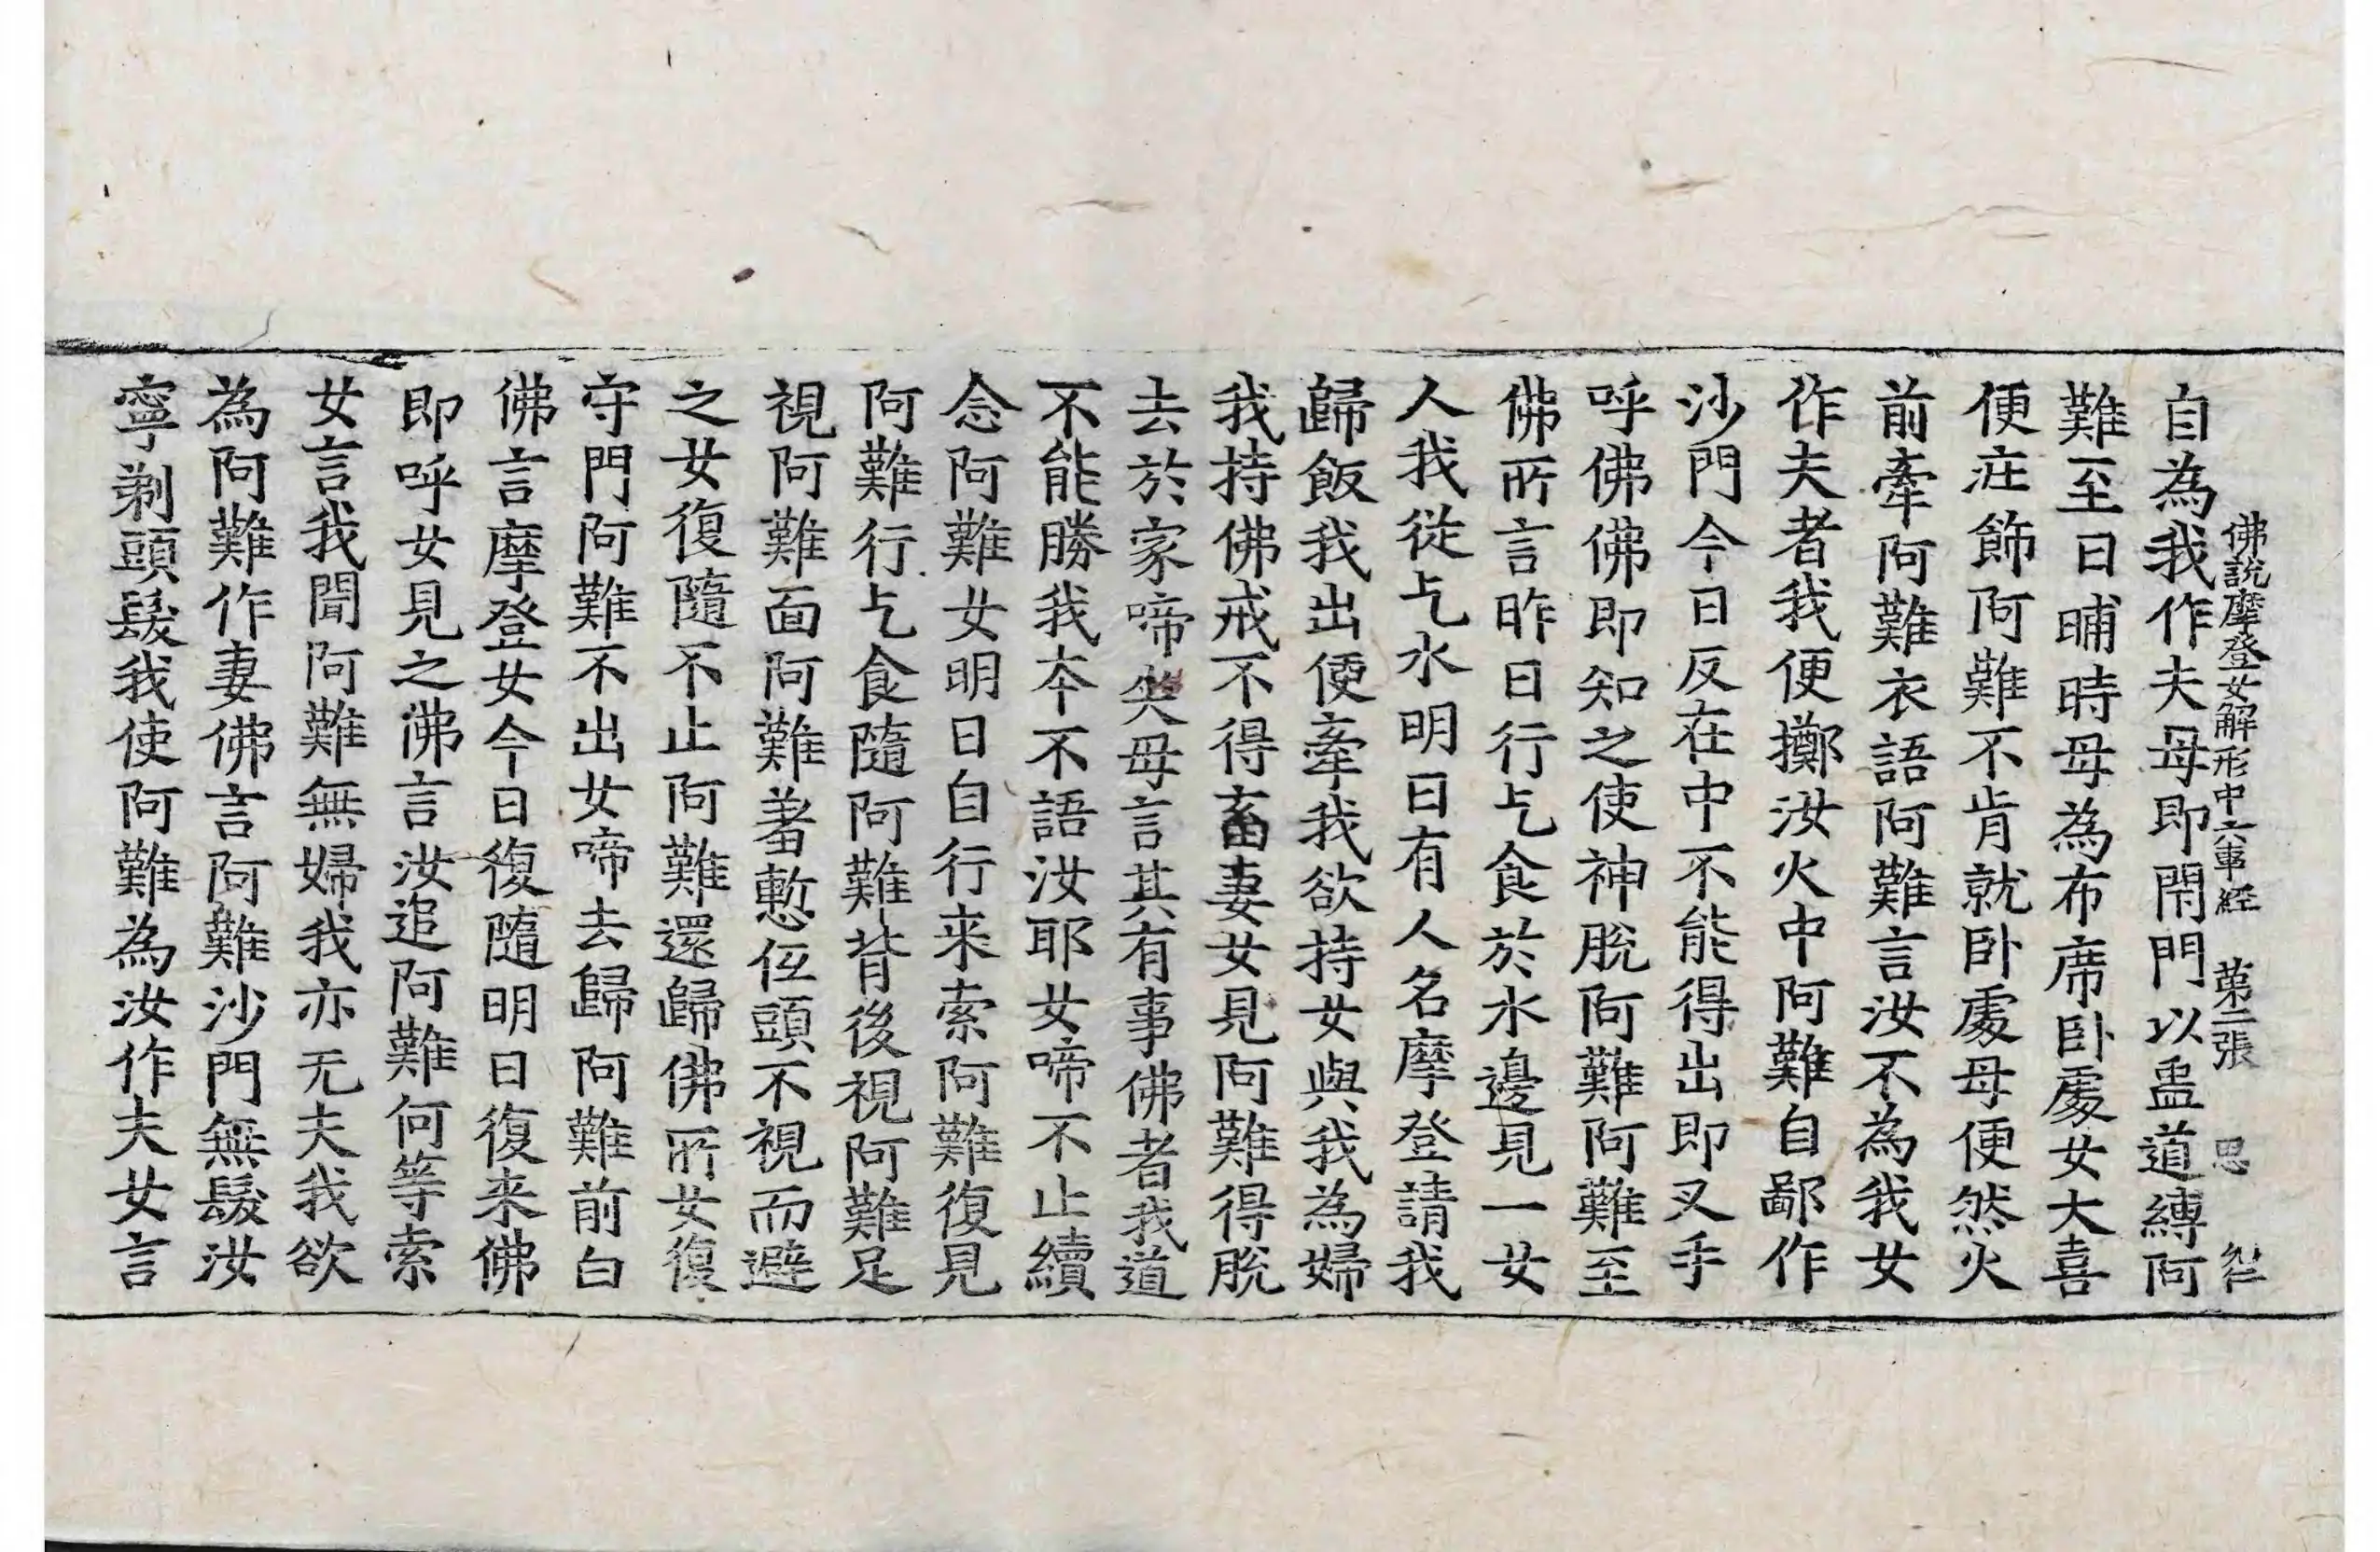 佛說摩登女解形中六事経 第二張 思
自為我作夫母即閇門以蛊道縛阿
難至日晡時母為布席卧處女大喜
便庄飾阿難不肯就卧處母便然火
前牽阿難衣語阿難言汝不為我女
作夫者我便擲汝火中阿難自鄙作
沙門今日反在中不能得出即叉手
呼佛佛即知之使神脫阿難阿難至
佛所言昨日行乞食於水邊見一女
人我從乞水明日有人名摩登請我
歸飯我出便牽我欲持女與我為婦
我持佛戒不得畜妻女見阿難得脫
去於家啼哭母言其有事佛者我道
不能勝我本不語汝耶女啼不止續
念阿難女明日自行来索阿難復見
阿難行乞食隨阿難背後視阿難足
視阿難面阿難羞慙伍頭不視而避
之女復隨不止阿難還歸佛所女復
守門阿難不出女啼去歸阿難前白
佛言摩登女今日復隨明日復来佛
即呼女見之佛言汝追阿難何等索
女言我聞阿難無婦我亦无夫我欲
為阿難作妻佛言阿難沙門無髮汝
寧剃頭髮我使阿難為汝作夫女言